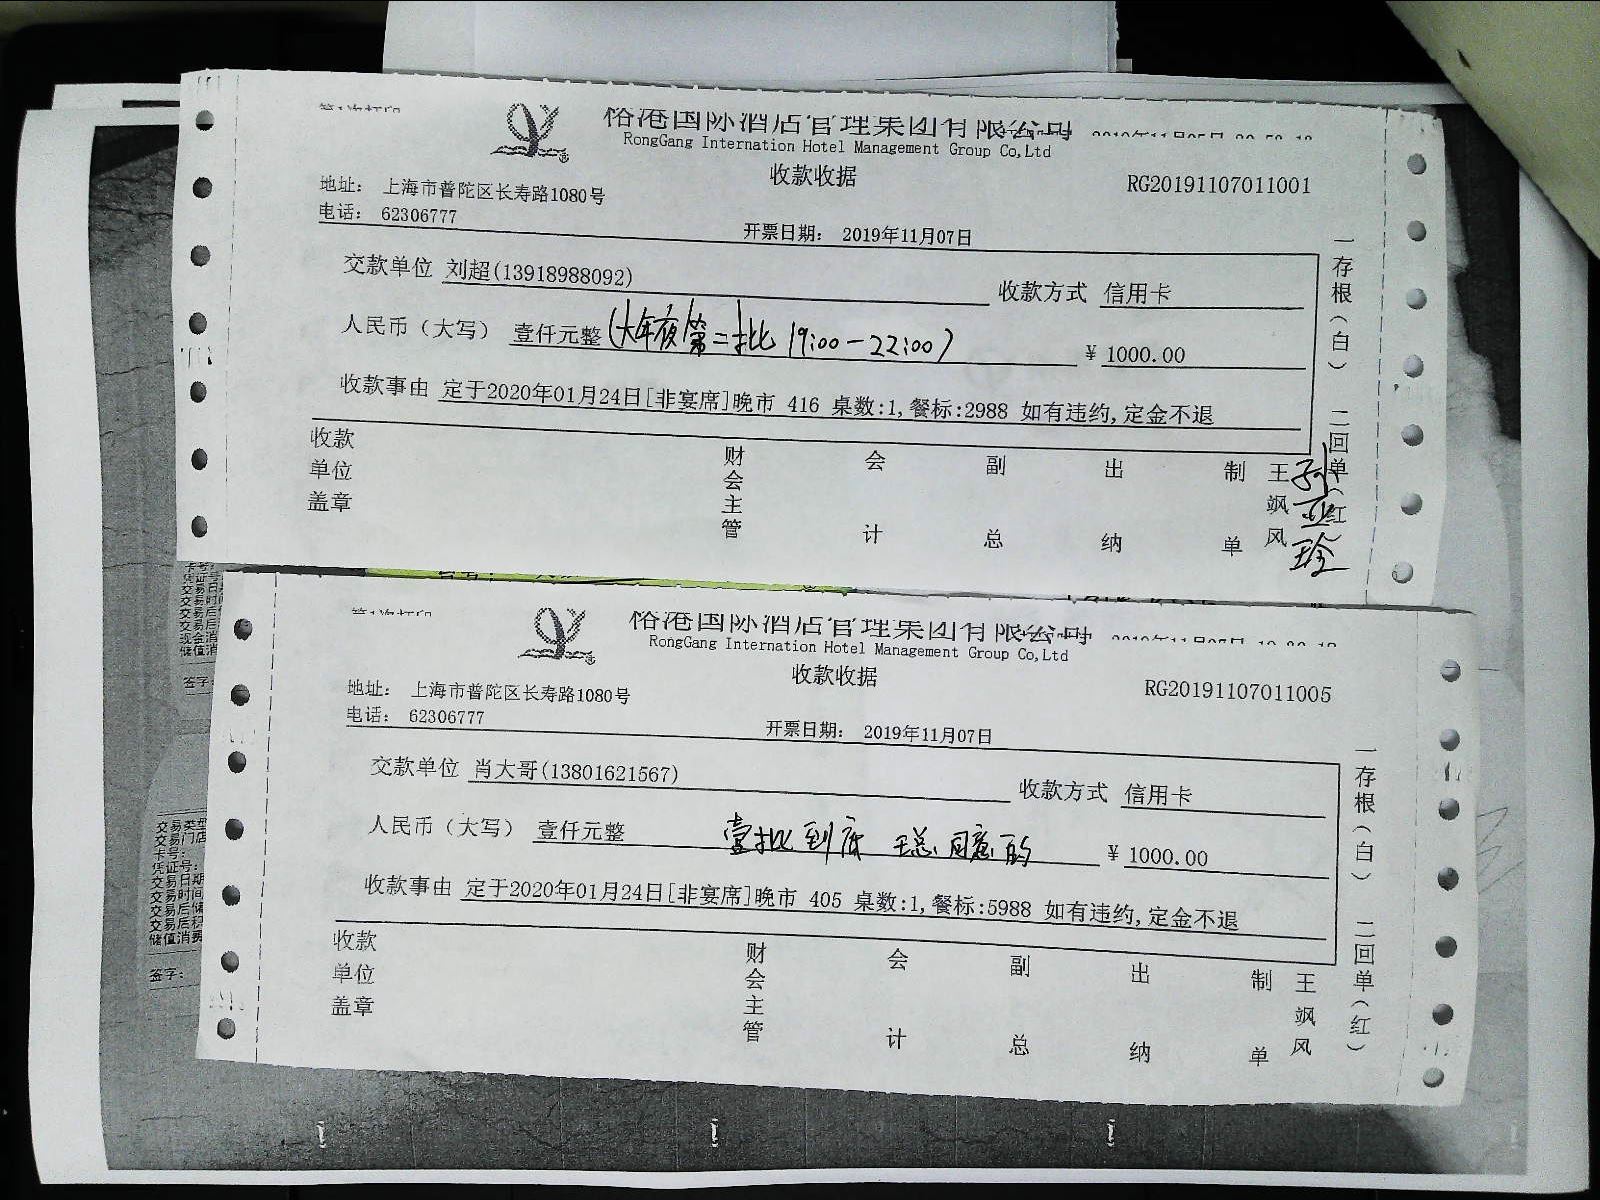 第1次打印
榕港国际酒店管理集团有限公司
RongGang Internation Hotel Management Group Co,Ltd
收款收据
RG20191107011001
地址： 上海市普陀区长寿路1080号
电话： 62306777
开票日期： 2019年11月07日
交款单位 刘超(13918988092)
收款方式 信用卡
人民币（大写） 壹仟元整 (大年夜第二批 19:00-22:00)
￥ 1000.00
收款事由 定于2020年01月24日[非宴席]晚市 416 桌数:1,餐标:2988 如有违约,定金不退
收款单位盖章
财会主管
会计
副总
出纳
制单
王飒风
一存根（白） 二回单（红）
第1次打印
榕港国际酒店管理集团有限公司
RongGang Internation Hotel Management Group Co,Ltd
收款收据
RG20191107011005
地址： 上海市普陀区长寿路1080号
电话： 62306777
开票日期： 2019年11月07日
交款单位 肖大哥(13801621567)
收款方式 信用卡
人民币（大写） 壹仟元整 壹批到底 王总同意的
￥ 1000.00
收款事由 定于2020年01月24日[非宴席]晚市 405 桌数:1,餐标:5988 如有违约,定金不退
收款单位盖章
财会主管
会计
副总
出纳
制单
王飒风
一存根（白） 二回单（红）